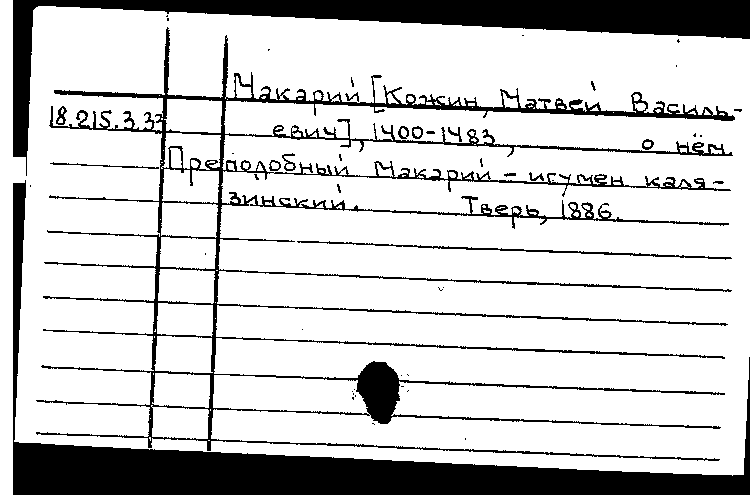 Макарий [Кожин, Матвей Василь-
18.215.3.33. евич], 1400-1483, о нём
Преподобный Макарий - игумен каля-
зинский. Тверь, 1886.